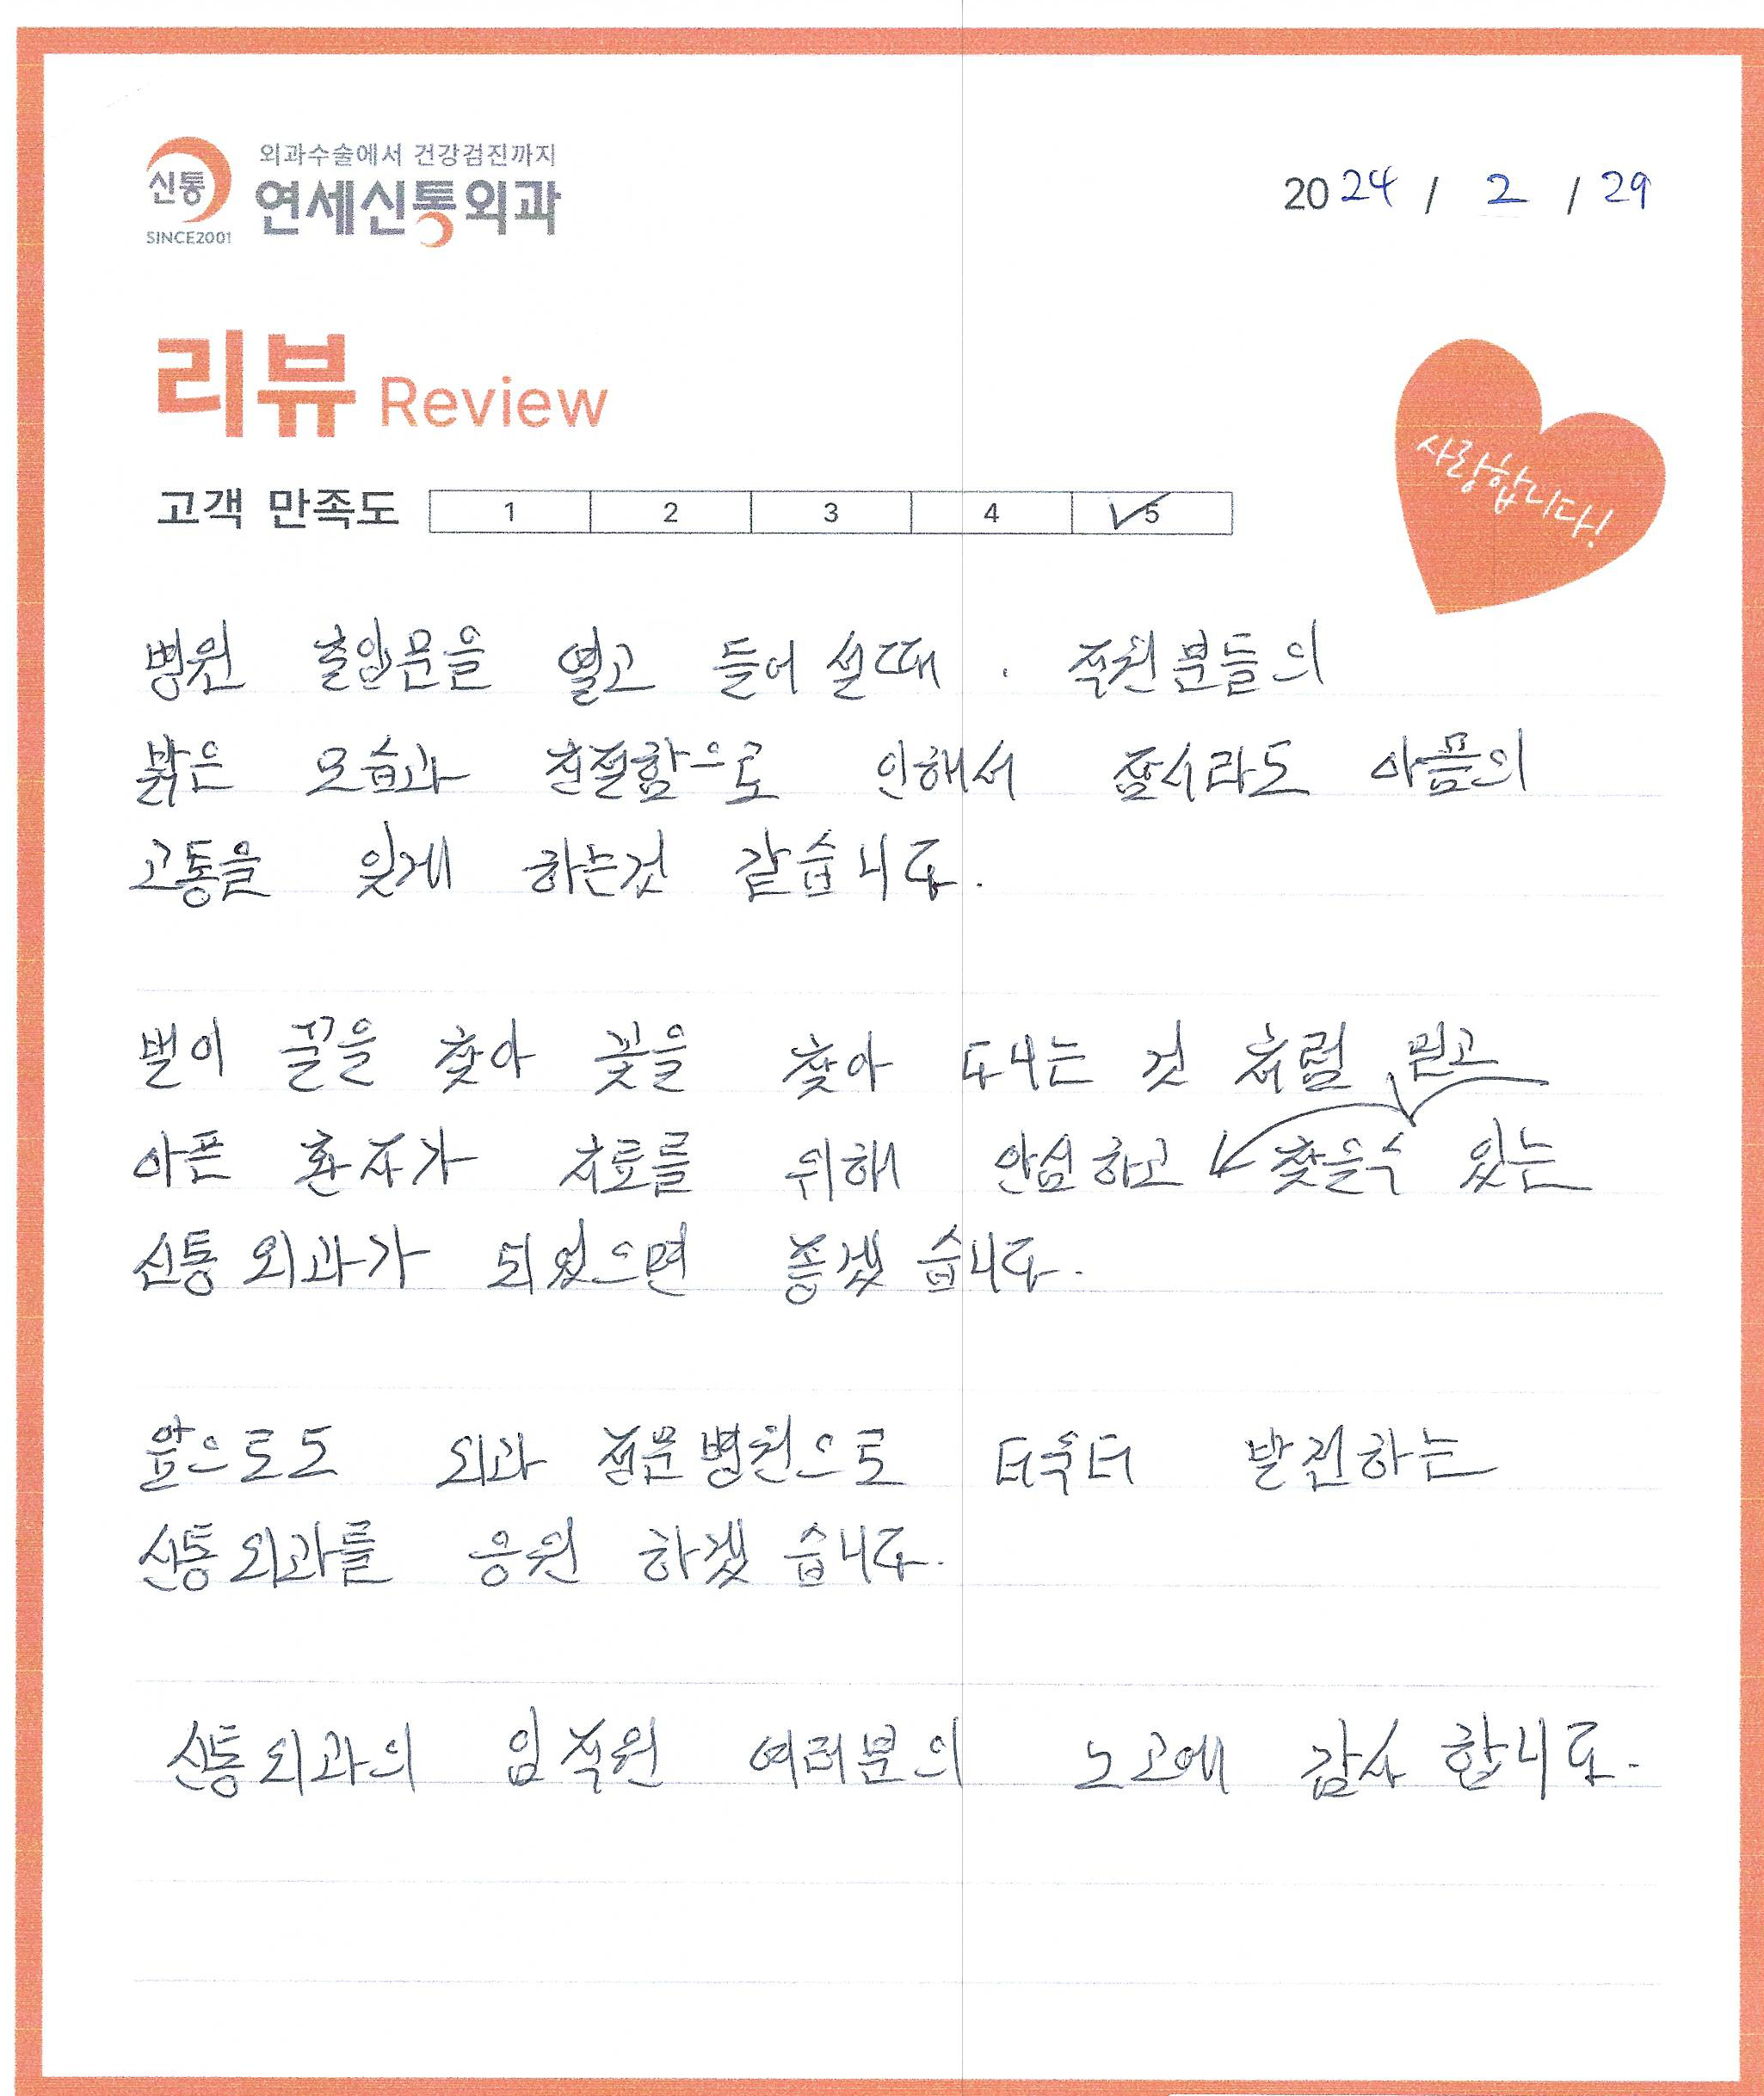 신통
SINCE2001
외과수술에서 건강검진까지
연세신통외과
2024 / 2 / 29
리뷰 Review
사랑합니다!
고객 만족도 1 2 3 4 5
병원 출입문을 열고 들어설때. 직원분들의
밝은 모습과 친절함으로 인해서 잠시라도 아픔의
고통을 잊게 하는것 같습니다.
벌이 꿀을 찾아 꽃을 찾아 다니는 것 처럼 믿고
아픈 환자가 치료를 위해 안심하고 찾을수 있는
신통외과가 되었으면 좋겠습니다.
앞으로도 외과 전문병원으로 더욱더 발전하는
신통외과를 응원 하겠습니다.
신통외과의 임직원 여러분의 노고에 감사합니다.